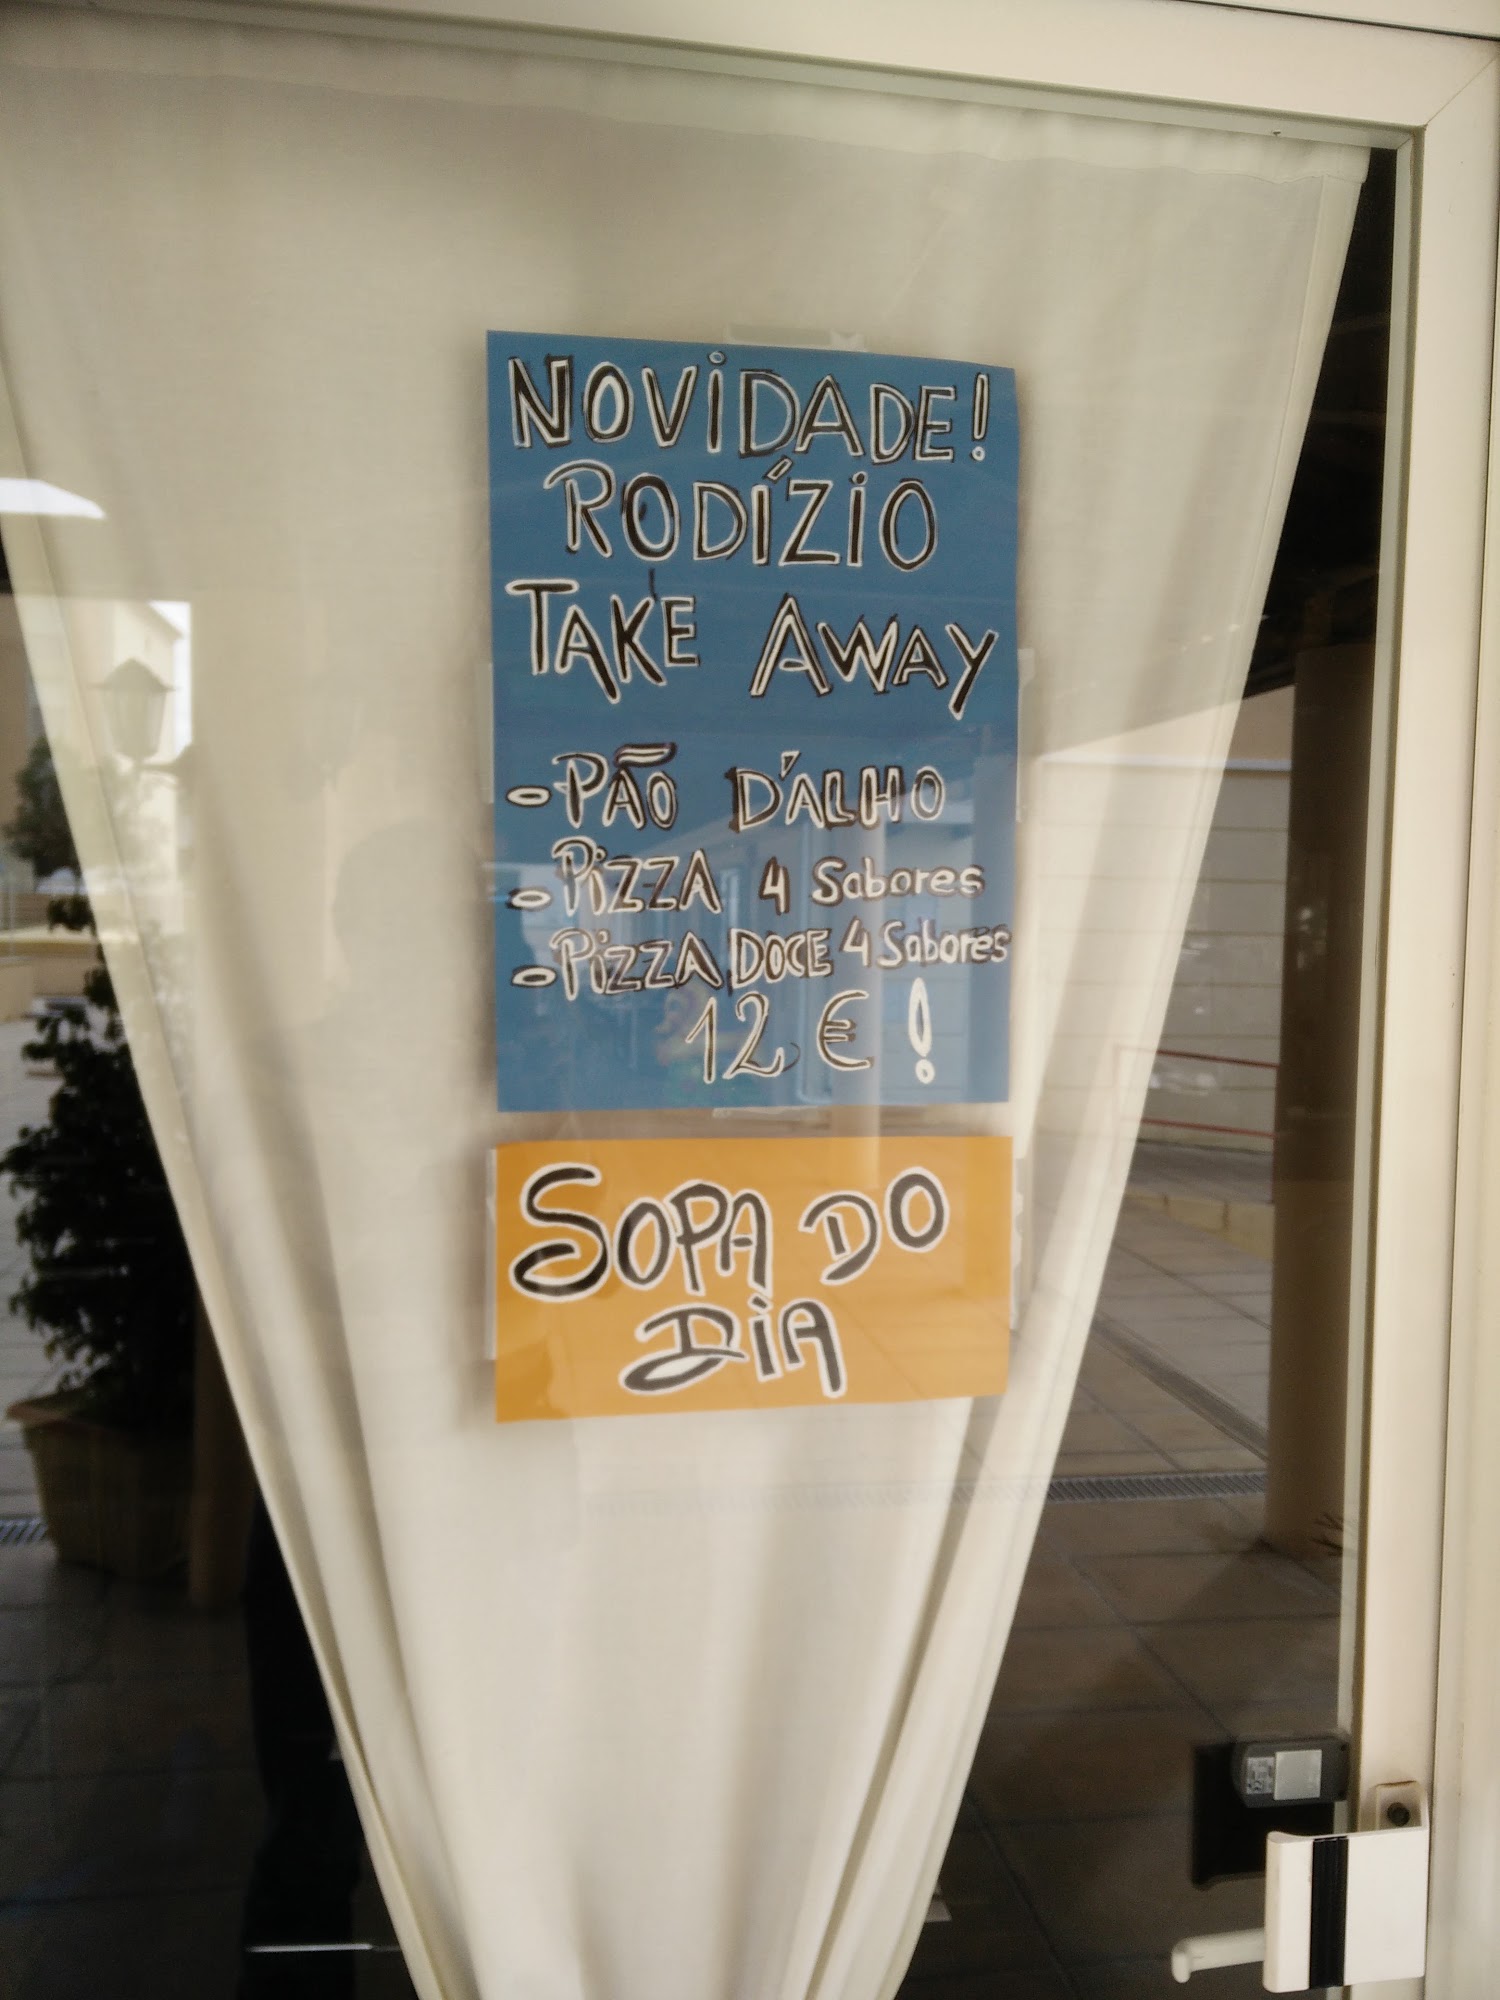 NOVIDADE!
RODÍZIO
TAKE AWAY
- PÃO D'ALHO
- PIZZA 4 Sabores
- PIZZA DOCE 4 Sabores
12 € !
SOPA DO
DIA